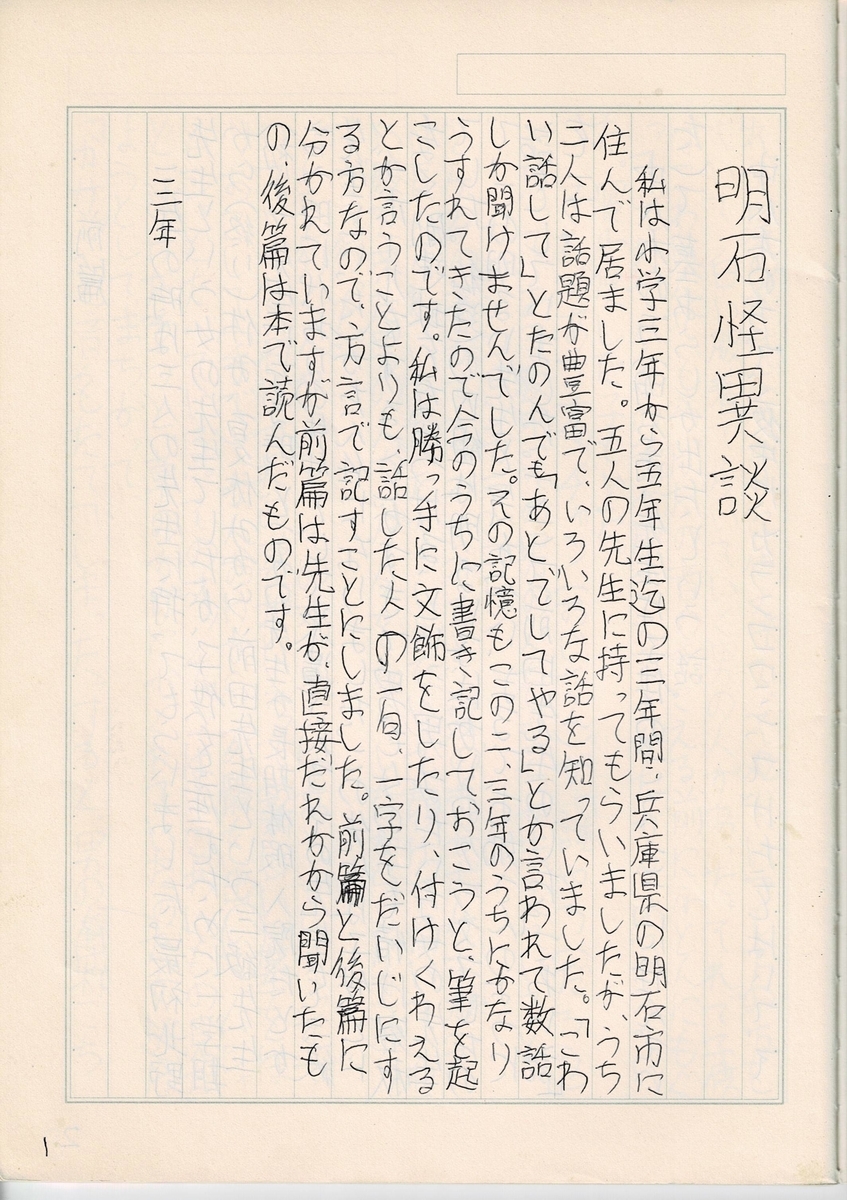 明石怪異談
私は小学三年から五年生迄の三年間、兵庫県の明石市に
住んで居ました。五人の先生に持ってもらいましたが、うち
二人は話題が豊富で、いろいろな話を知っていました。「こわ
い話して」とたのんでも「あとでしてやる」とか言われて数話
しか聞けませんでした。その記憶もこの二、三年のうちにかなり
うすれてきたので今のうちに書き記しておこうと、筆を起
こしたのです。私は勝っ手に文飾をしたり、付けくわえる
とか言うことよりも、話した人の一句、一字をだいじにす
る方なので、方言で記すことにしました。前篇と後篇に
分かれていますが前篇は先生が、直接だれかから聞いたも
の、後篇は本で読んだものです。
三年
1